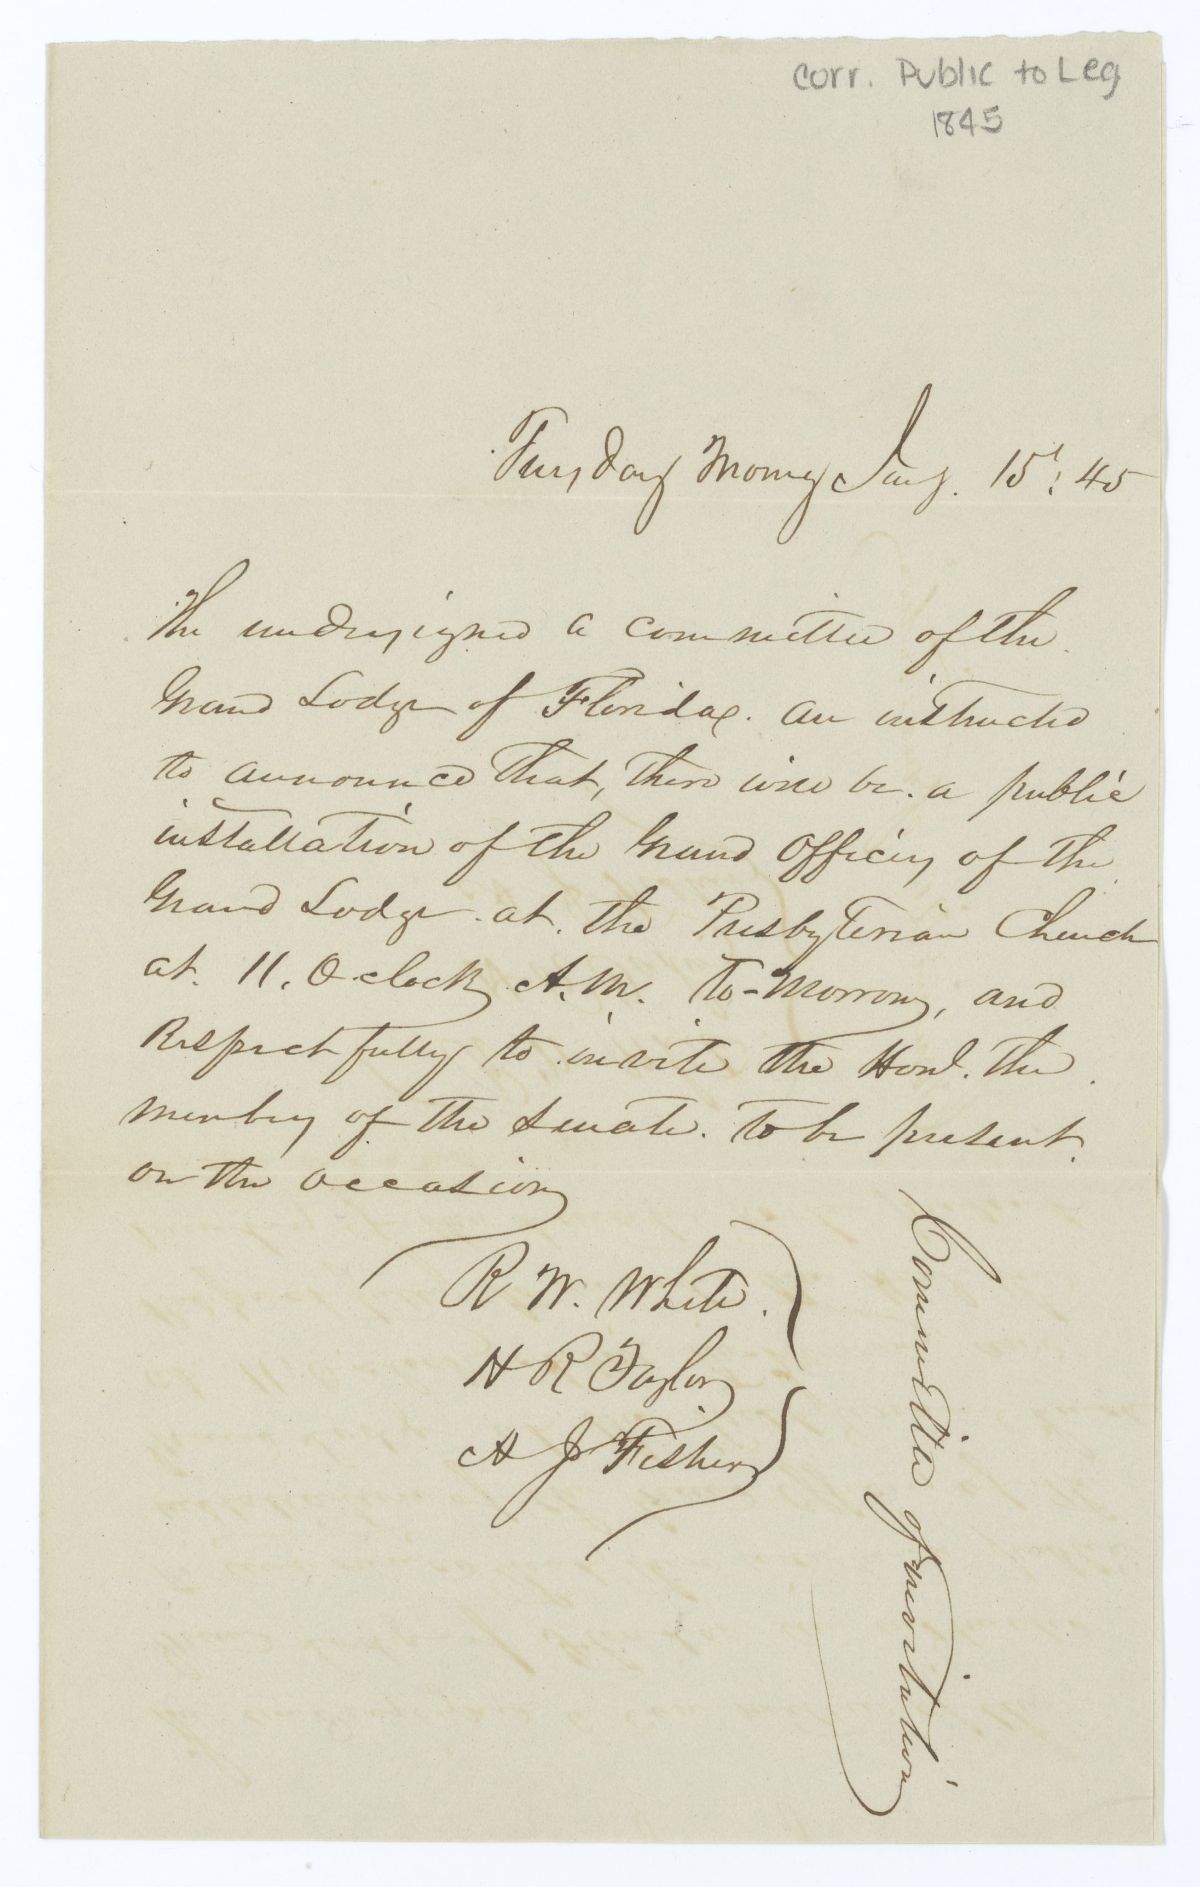 Corr. Public to Leg
1845
Tuesday Morng Jany. 15t: 45
The undersigned a committee of the
Grand Lodge of Florida. are instructed
to announce that, there will be. a public
installation of the Grand Officers of the
Grand Lodge. at. the Presbyterian Church
at. 11. O clock, A.M. To-Morrow, and
Respectfully to invite the Honl. the
members of the Senate. to be present.
on the occasion
R W. White.
H R Taylor
A J Fisher
Committee of invitation